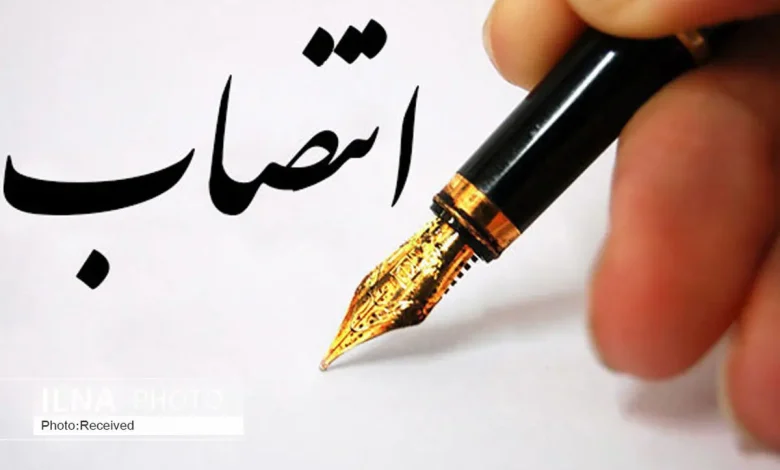 انتصاب
ILNA PHOTO
Photo:Received